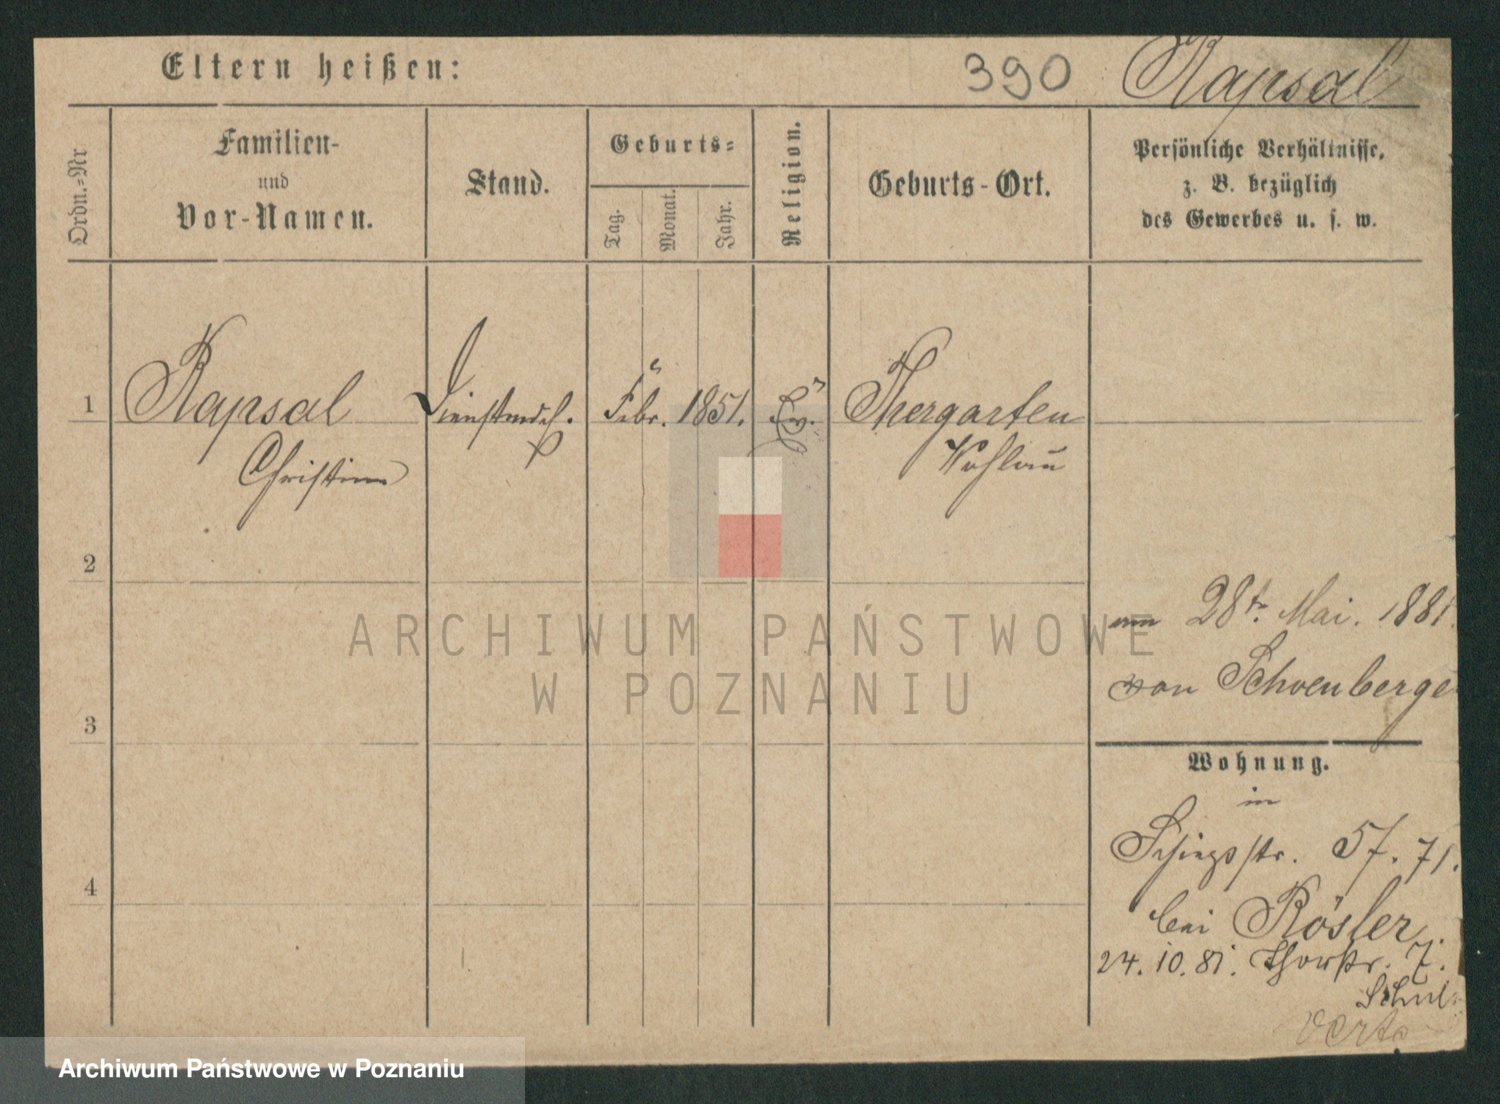 Eltern heißen:
390
Rapsal
Ordn.=Nr
Familien-
und
Vor-Namen.
Stand.
Geburts=
Tag.
Monat.
Jahr.
Religion.
Geburts-Ort.
Persönliche Verhältnisse,
z. B. bezüglich
des Gewerbes u. s. w.
1
Rapsal
Christine
Febr. 1851.
Ev.
Thergarten
Wohlau
2
am 28t. Mai. 1881.
von Schoenberge
3
Wohnung.
in
57. 71.
bei Rösler.
4
24. 10. 81. Thorstr. 7.
ARCHIWUM PAŃSTWOWE
W POZNANIU
Archiwum Państwowe w Poznaniu